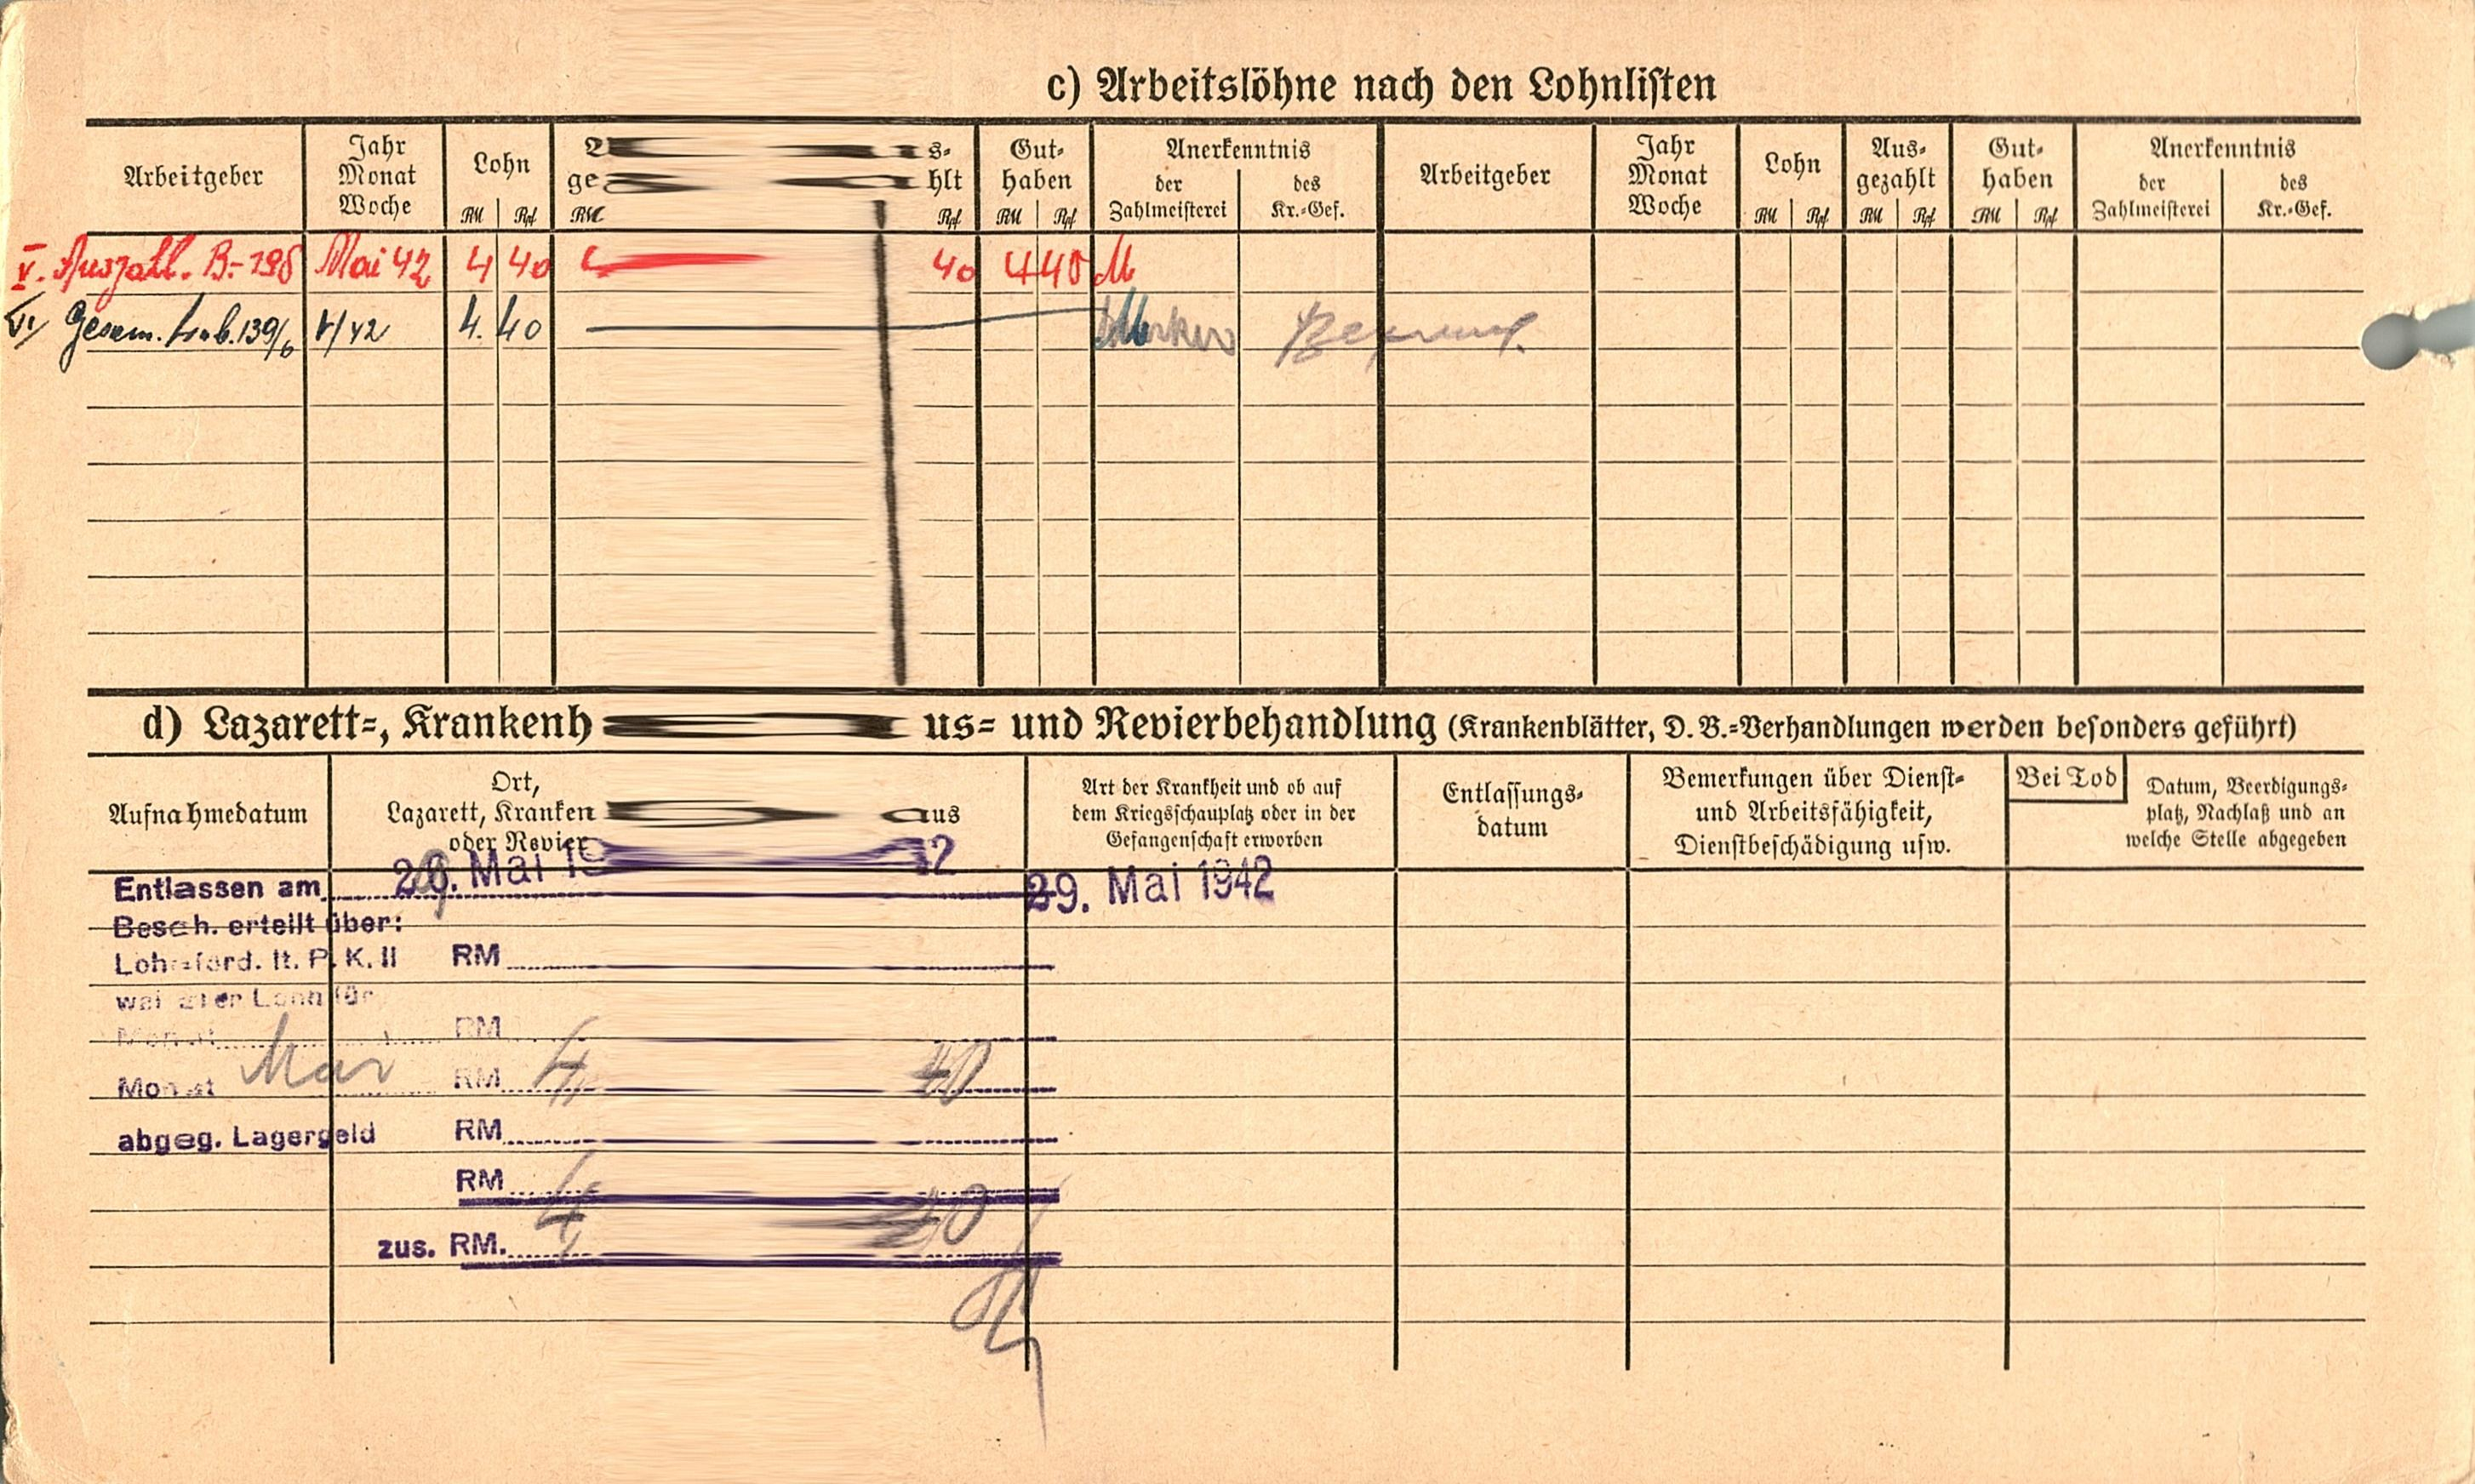 c) Arbeitslöhne nach den Lohnlisten
Arbeitgeber
Jahr
Monat
Woche
Lohn
RM Rpf
ge hlt
RM Rpf
Gut-
haben
RM Rpf
Anerkenntnis
der
Zahlmeisterei
des
Kr.-Gef.
Arbeitgeber
Jahr
Monat
Woche
Lohn
RM Rpf
Aus-
gezahlt
RM Rpf
Gut-
haben
RM Rpf
Anerkenntnis
der
Zahlmeisterei
des
Kr.-Gef.
V. Auszahl. B.-198 Mai 42 4 40 40 4 40 M
VI/ Gesam. 139/6 V/42 4.40
d) Lazarett-, Krankenh us- und Revierbehandlung (Krankenblätter, D. B.-Verhandlungen werden besonders geführt)
Aufnahmedatum
Ort,
Lazarett, Kranken aus
oder Revier
Art der Krankheit und ob auf
dem Kriegsschauplatz oder in der
Gefangenschaft erworben
Entlassungs-
datum
Bemerkungen über Dienst-
und Arbeitsfähigkeit,
Dienstbeschädigung usw.
Bei Tod
Datum, Beerdigungs-
platz, Nachlaß und an
welche Stelle abgegeben
Entlassen am Mai 29. Mai 1942
Besch. erteilt über:
Lohnford. lt. P. K. II RM
weiterer Lohn für
Monat RM
Monat Mai RM 4, 40
abgeg. Lagergeld RM
RM
zus. RM. 4, 40